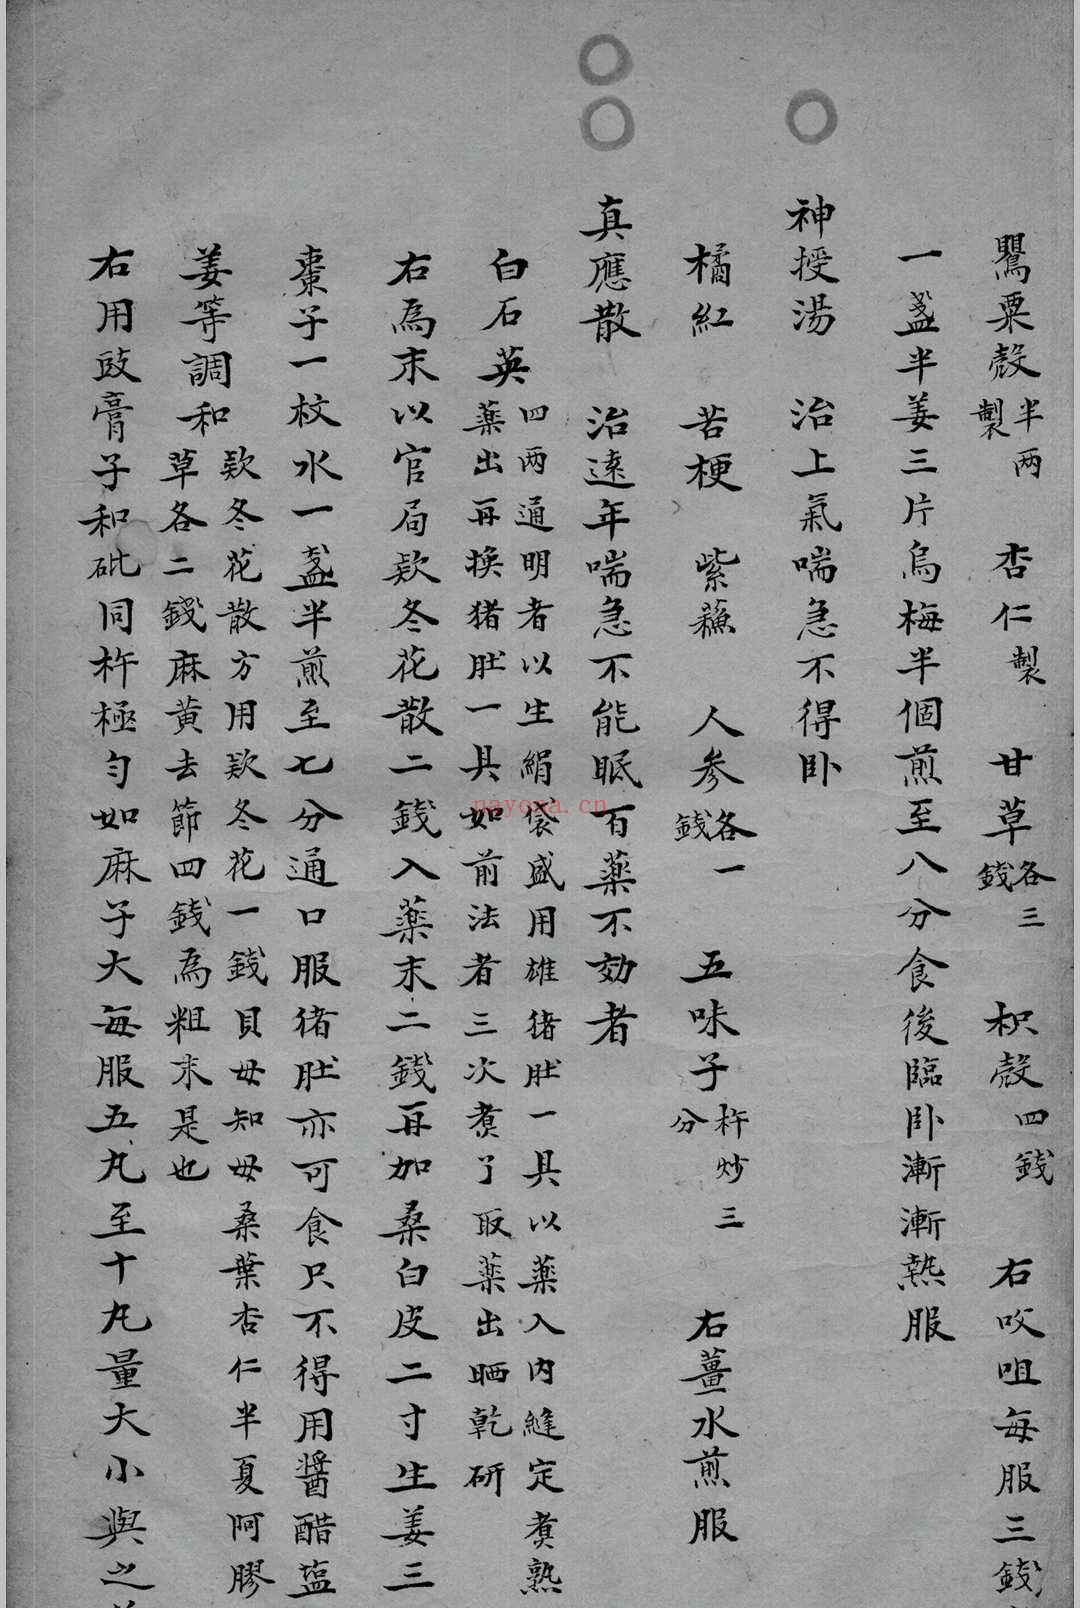 鸎粟殼半两製　杏仁製　甘草各三錢　枳殼四錢　右咬咀每服三錢
一盞半姜三片烏梅半個煎至八分食後臨卧漸漸熱服
神授湯　治上氣喘急不得卧
橘紅　苦梗　紫蘓　人參各一錢　五味子杵炒三分　右薑水煎服
真應散　治遠年喘急不能眠百薬不効者
白石英四两通明者以生絹袋盛用雄猪肚一具以薬入内縫定煮熟薬出再換猪肚一具如前法者三次煮了取薬出晒乾研
右為末以官局欵冬花散二錢入薬末二錢再加桑白皮二寸生姜三
棗子一枚水一盞半煎至七分通口服猪肚亦可食只不得用醤醋塩
姜等調和欵冬花散方用欵冬花一錢貝母知母桑葉杏仁半夏阿膠草各二錢麻黄去節四錢為粗末是也
右用豉膏子和砒同杵極匀如麻子大每服五丸至十丸量大小與之
nayona.cn